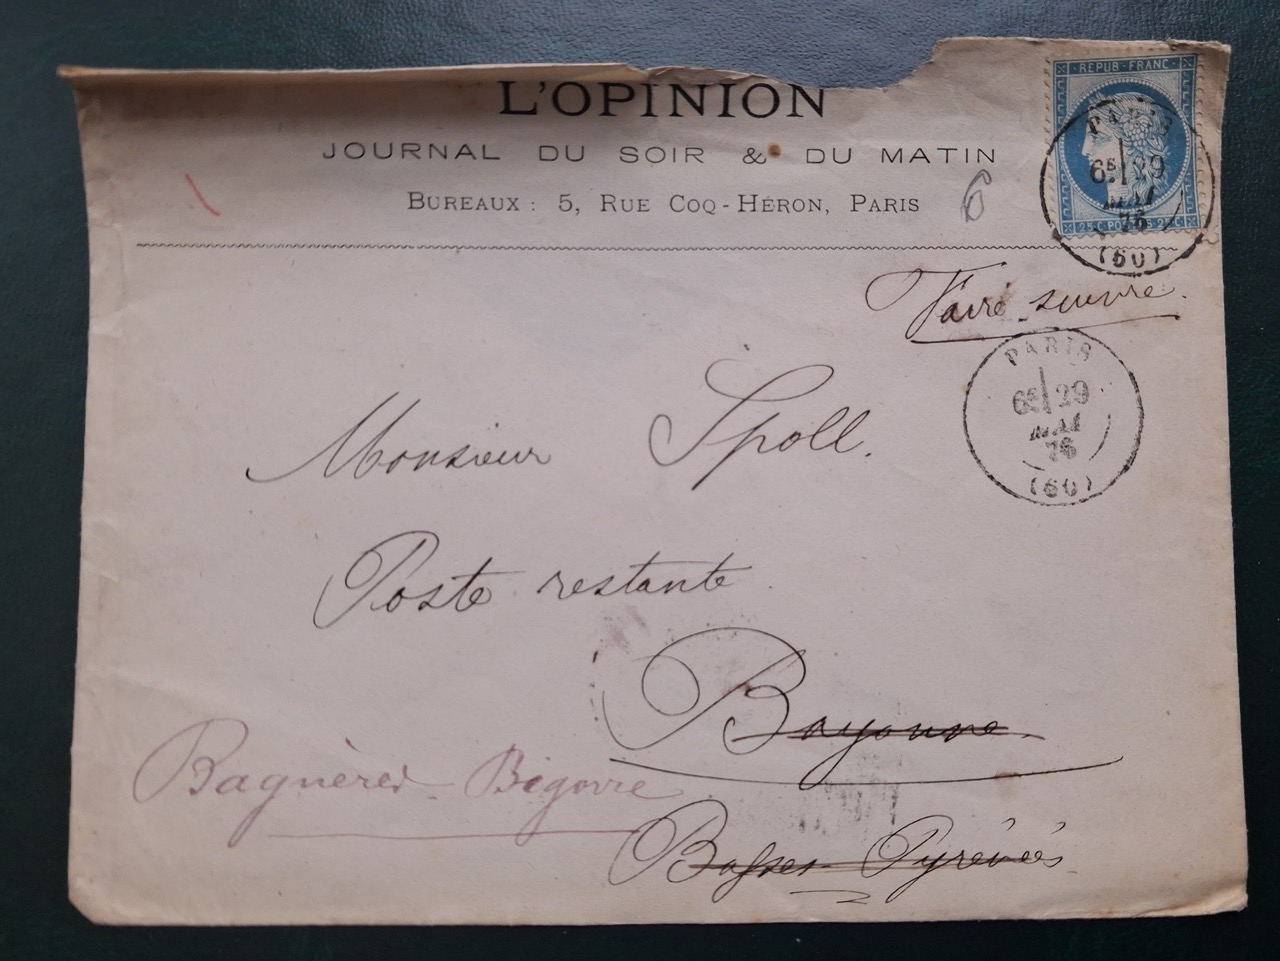 L'OPINION
JOURNAL DU SOIR & DU MATIN
BUREAUX : 5, RUE COQ-HÉRON, PARIS
REPUB · FRANC ·
25 C POSTES 25 C
PARIS
6E 29
MAI
76
(60)
Faire suivre.
PARIS
6E 29
MAI
76
(60)
Monsieur Spoll.
Poste restante.
Bayonne
Bagnères-Bigorre
Basses-Pyrénées